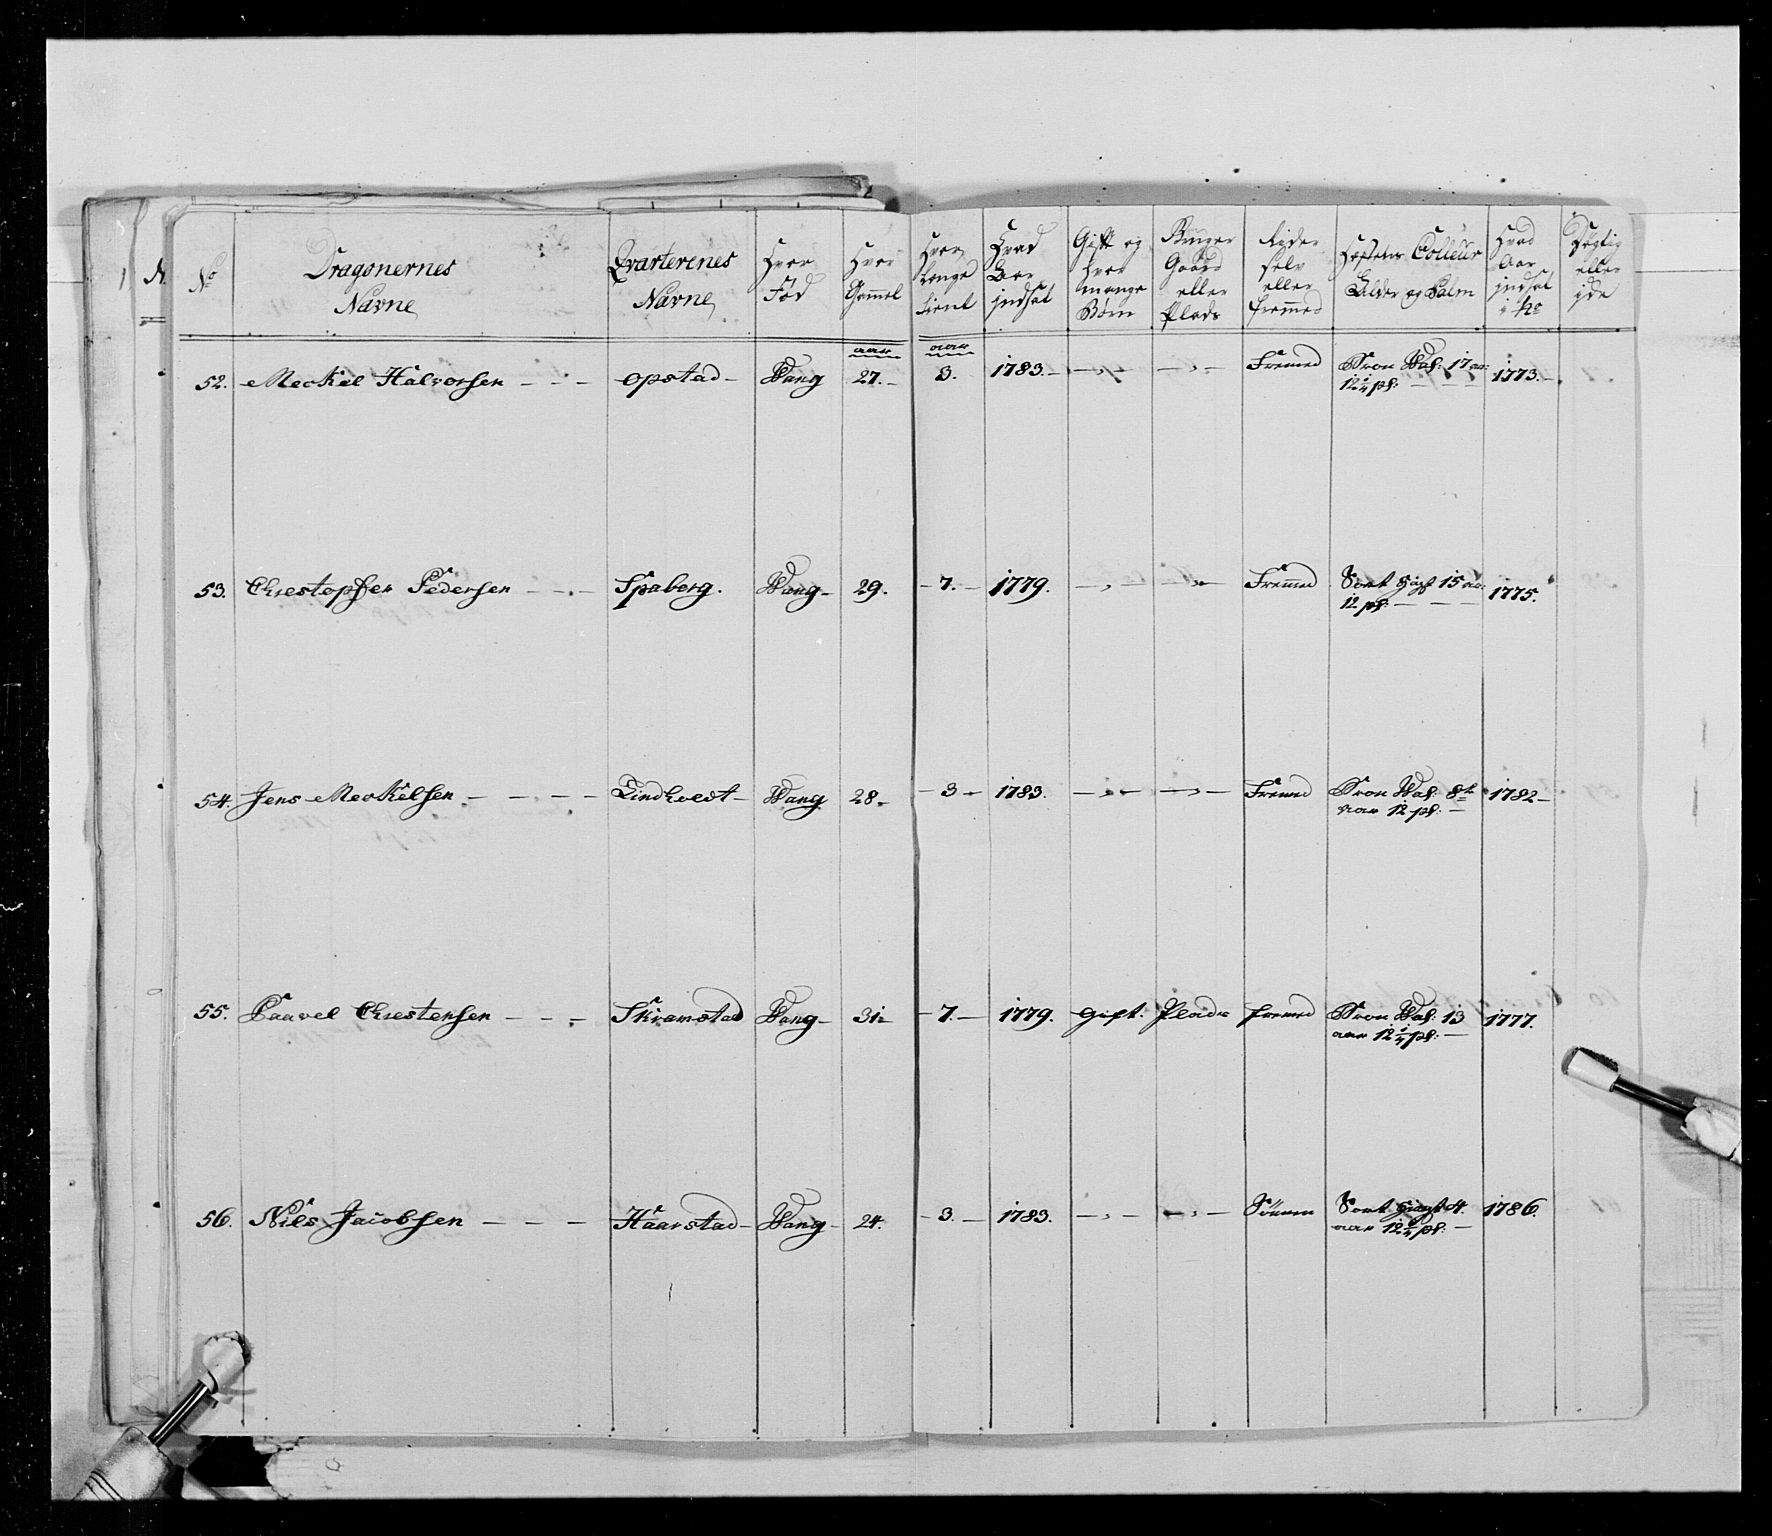 No Dragonernes Navne Qvarterenes Navne Hvor Fød Hvor Gammel Hvor Længe tient Hvad Aar indsat Gift og hvor mange Børn Bruger Gaard eller Plads Rider selv eller fremmed Hestens Couleur Alder og Palm Hvad Aar indsat i No Dygtig eller ide
aar aar
52. Merkel Halvorsen - - - opstad - Wang 27. - 3. 1783. - - „ - - „ - Fremed Brun Wal: 17 aar 12 1/4 pl: - - - 1773. -
53. Chrestopher Pedersen - - - Spaberg. Wang - 29. - 7. - 1779. - „ - „ - Fremed Sort Higst 15 aar: 12 pl: - - - 1775.
54. Jens Merkelsen - - - - Lindholt - Wang 28 - - 3 - 1783. - „ - - „ - Fremed Brun Wal: 8te aar 12 pl: - 1782 -
55. Paavel Chrestensen - - - Skramstad Wang - 31 - - 7. - 1779. Gift. Plads fremed Brun Wal: 13 aar 12 1/4 pl: - 1777.
56. Niels Jacobsen - - - - Haarstad - Wang - 24. - 3. - 1783. - „ - - „ - Sort Higst 4. aar 12 1/4 pl: - 1786.